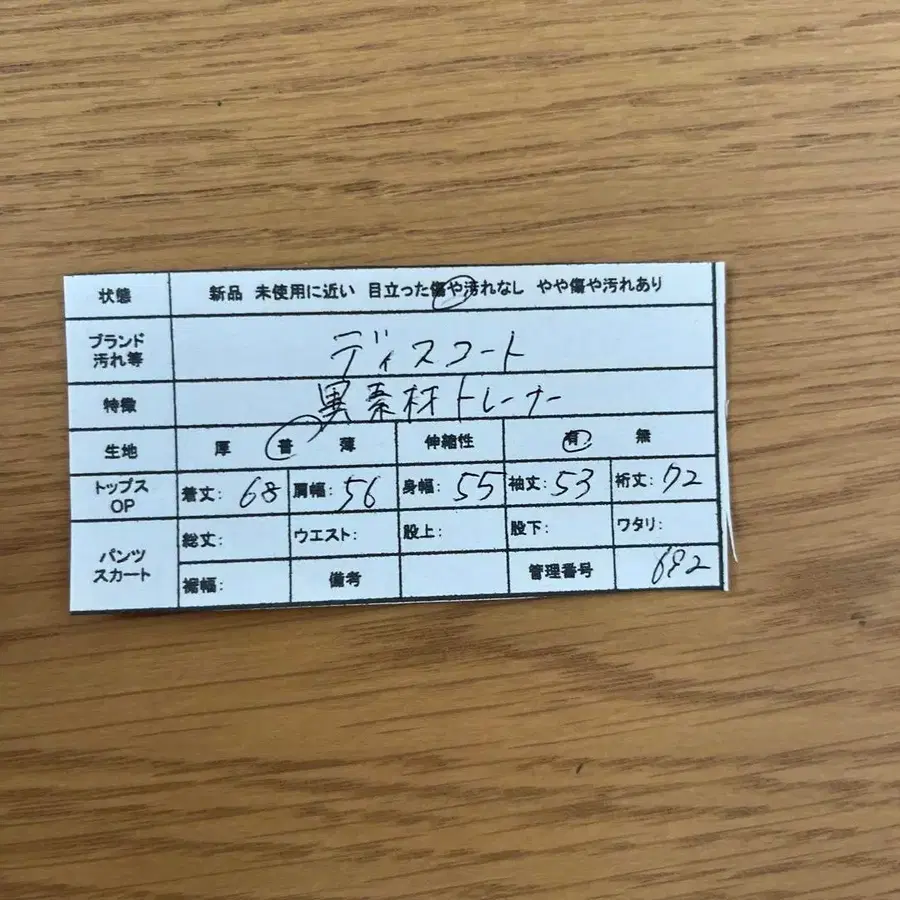 状態 新品 未使用に近い 目立った傷や汚れなし やや傷や汚れあり
ブランド
汚れ等 ディスコート
特徴 異素材トレーナー
生地 厚 普 薄 伸縮性 有 無
トップス
OP 着丈: 68 肩幅: 56 身幅: 55 袖丈: 53 裄丈: 72
パンツ
スカート 総丈: ウエスト: 股上: 股下: ワタリ:
裾幅: 備考 管理番号 692